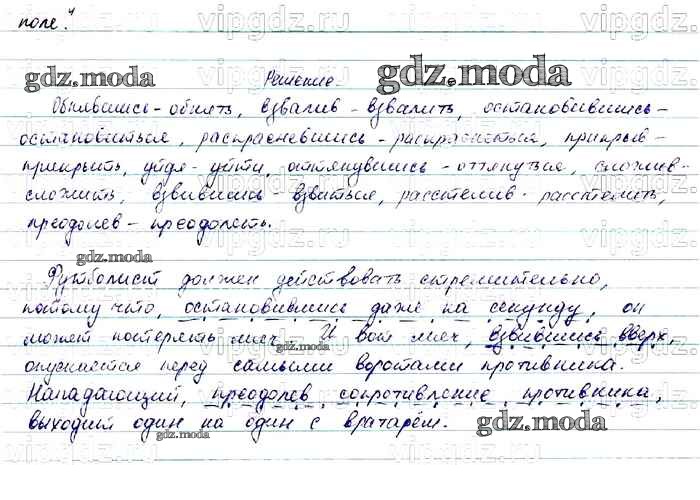 поле."
Решение.
Обнявшись - обнять, взвалив - взвалить, остановившись -
остановиться, раскрасневшись - раскраснеться, прикрыв -
прикрыть, уйдя - уйти, оттянувшись - оттянуться, сложив -
сложить, взвившись - взвиться, расстелив - расстелить,
преодолев - преодолеть.
Футболист должен действовать стремительно,
потому что, остановившись даже на секунду, он
может потерять мяч. И вот мяч, взвившись вверх,
опускается перед самыми воротами противника.
Нападающий, преодолев сопротивление противника,
выходит один на один с вратарём.
gdz.moda
gdz.moda
gdz.moda
gdz.moda
gdz.moda
gdz.moda
vipgdz.ru